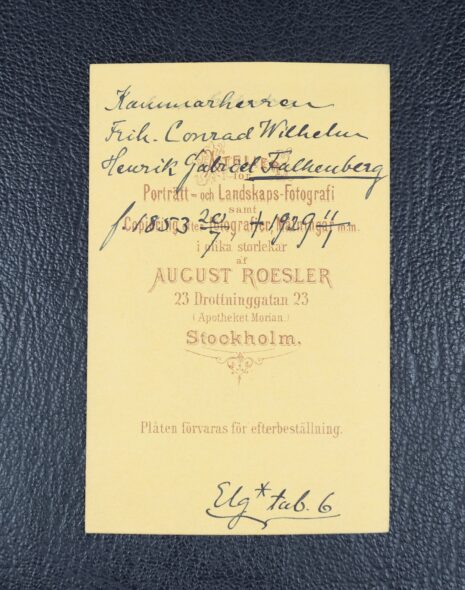 Kammarherren
Frih. Conrad Wilhelm
Henrik Gabriel Falkenberg
ATELIER
för
Porträtt- och Landskaps-Fotografi
samt
f. 1853 20/7, † 1929 4/4
Copiering efter fotografier, Målningar m.m.
i olika storlekar
af
AUGUST ROESLER
23 Drottninggatan 23
(Apotheket Morian)
Stockholm.
Plåten förvaras för efterbeställning.
Elg* tab. 6